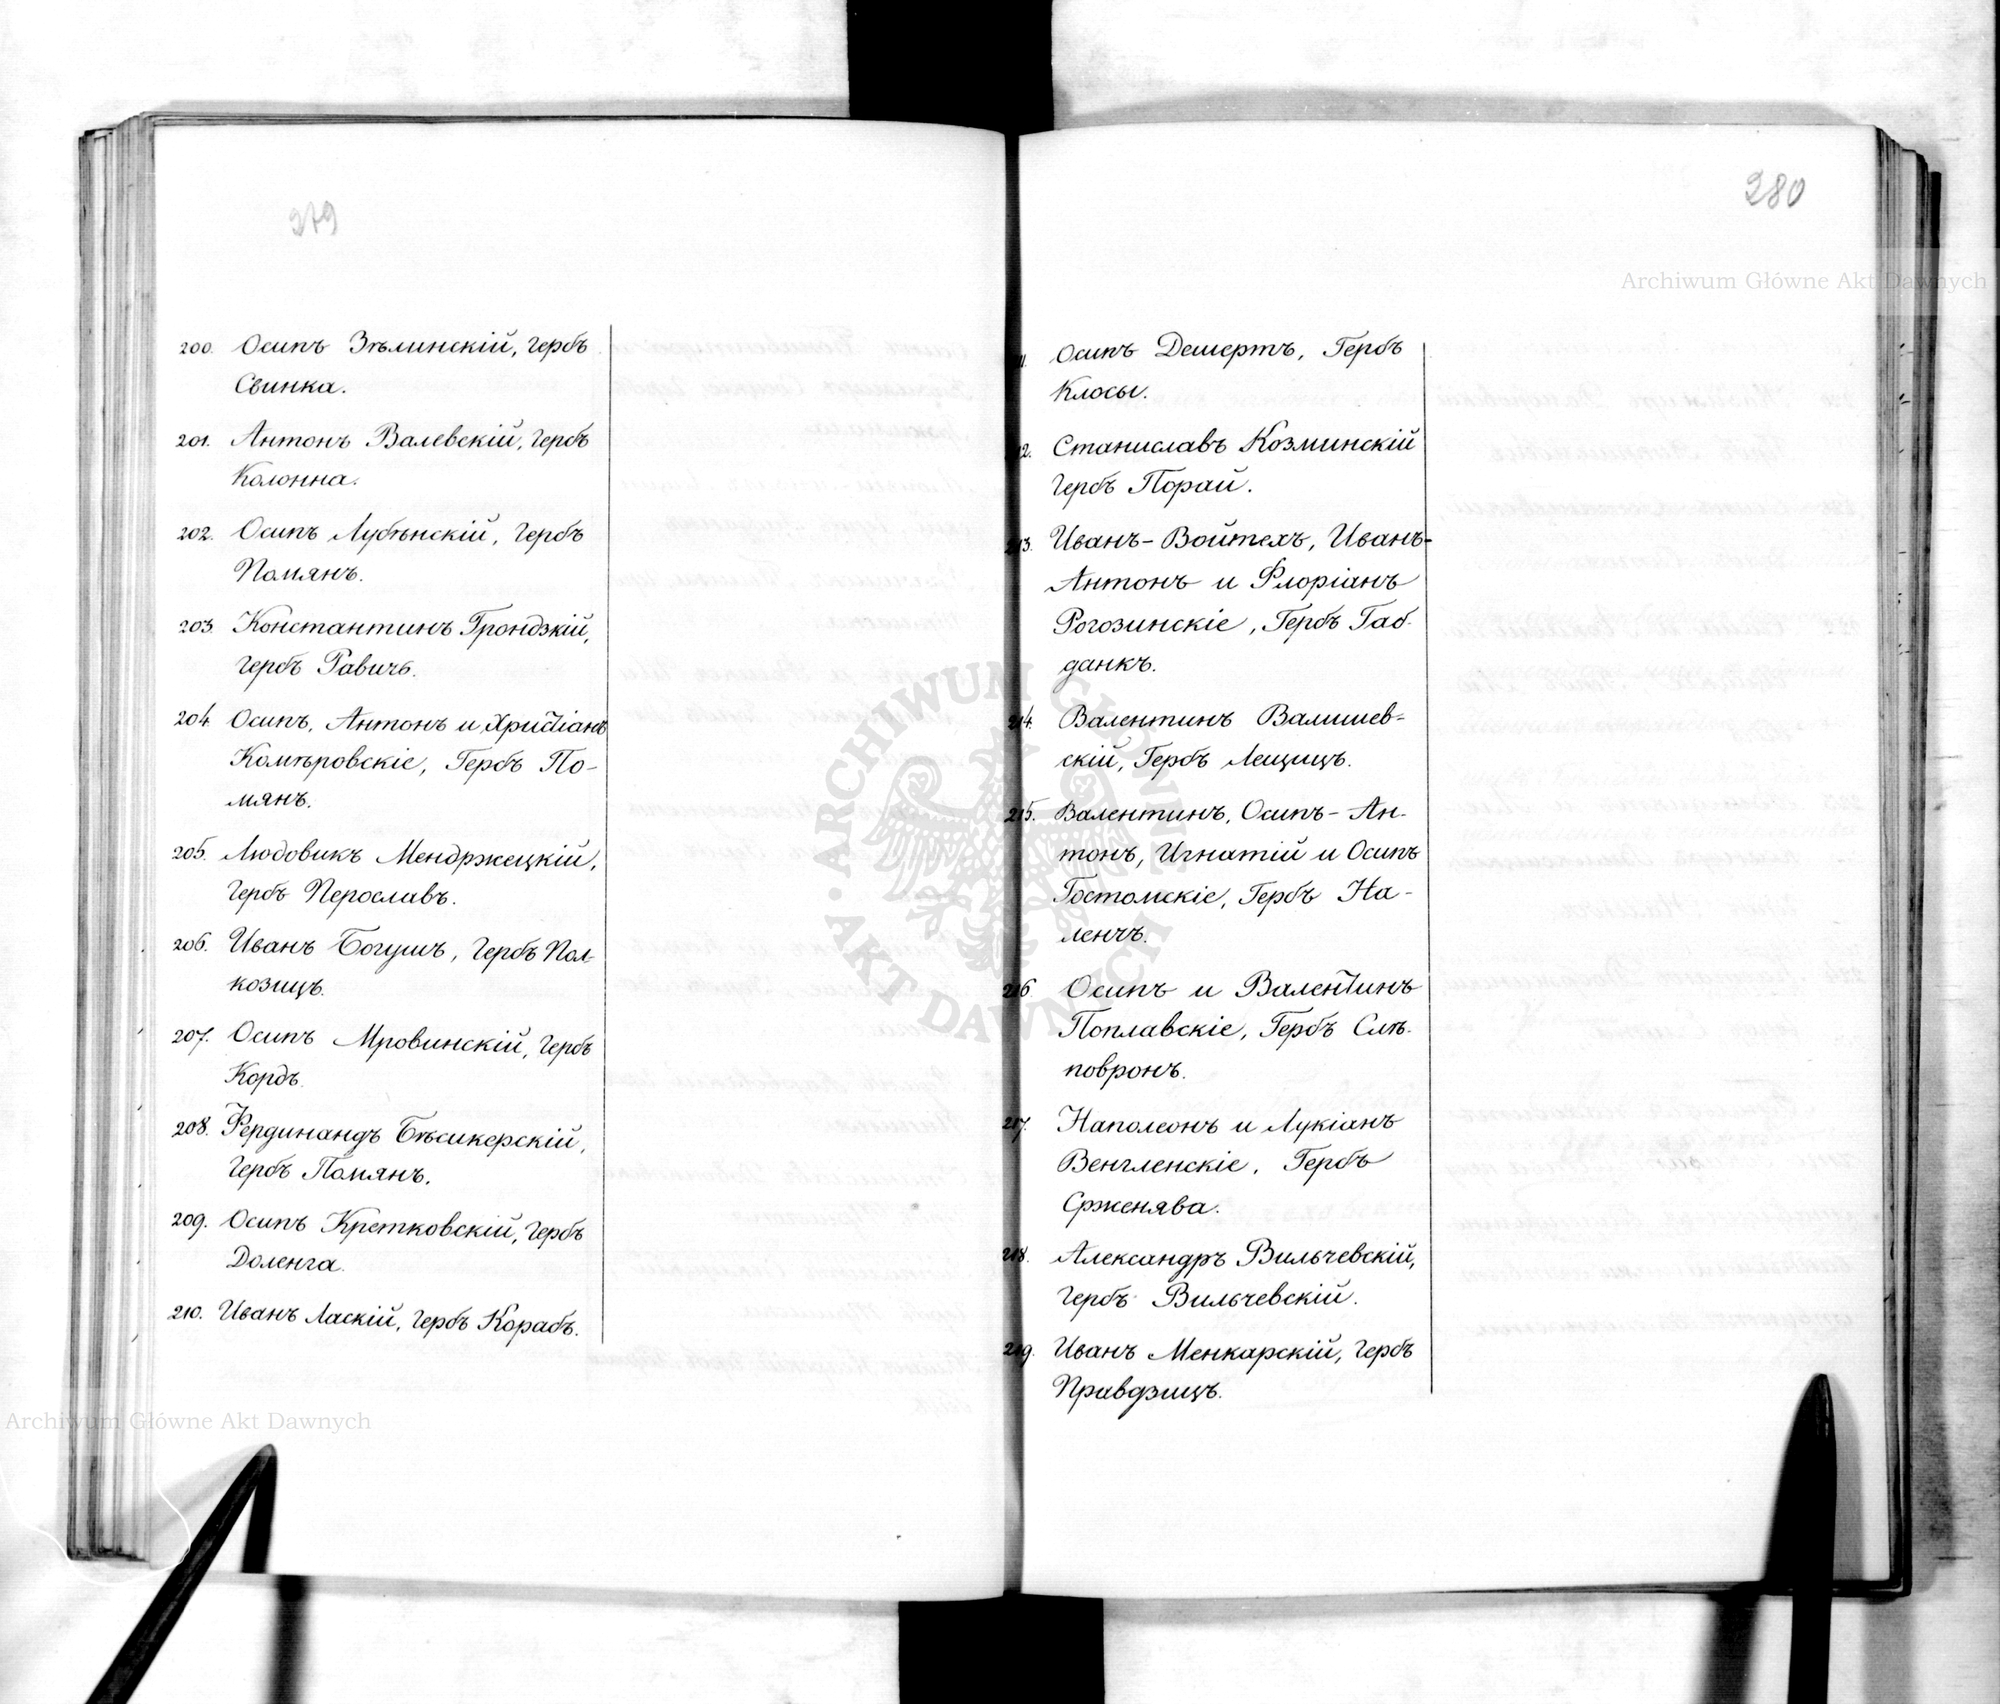 279
200. Осипъ Зѣлинскій, гербъ
Свинка.
201. Антонъ Валевскій, гербъ
Колонна.
202. Осипъ Лубѣнскій, гербъ
Помянъ.
203. Константинъ Грондзкій,
гербъ Равичъ.
204. Осипъ, Антонъ и Христіанъ
Комѣровскіе, Гербъ По-
мянъ.
205. Людовикъ Мендржецкій,
гербъ Перославъ.
206. Иванъ Богушъ, гербъ Пол-
козицъ.
207. Осипъ Мровинскій, гербъ
Кордъ.
208. Фердинандъ Бѣсикерскій,
гербъ Помянъ.
209. Осипъ Кретковскій, гербъ
Доленга.
210. Иванъ Ласкій, гербъ Корабъ.
280
Archiwum Główne Akt Dawnych
11. Осипъ Дешертъ, Гербъ
Клосы.
12. Станиславъ Козминскій
гербъ Порай.
213. Иванъ-Войтехъ, Иванъ-
Антонъ и Флоріанъ
Рогозинскіе, Гербъ Габ-
данкъ.
214. Валентинъ Валишев-
скій, Гербъ Лещицъ.
215. Валентинъ, Осипъ-Ан-
тонъ, Игнатій и Осипъ
Гостомскіе, Гербъ На-
ленчъ.
216 Осипъ и Валентинъ
Поплавскіе, Гербъ Слѣ-
повронъ.
217. Наполеонъ и Лукіанъ
Венгленскіе, Гербъ
Срженява.
218. Александръ Вильчевскій,
гербъ Вильчевскій.
219. Иванъ Менкарскій, гербъ
Правдзицъ.
ARCHIWUM GŁÓWNE AKT DAWNYCH
Archiwum Główne Akt Dawnych